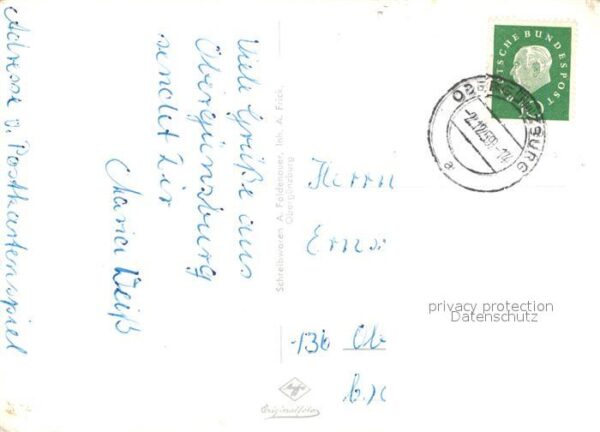 Viele Grüße aus
Obergünzburg
sendet Dir
Maria Weiß
Adresse v. Postkartenspiel
Schreibwaren A. Faldenauer, Inh. A. Frick,
Obergünzburg
DEUTSCHE BUNDESPOST
OBERGÜNZBURG
-2.12.59.-12
a
Herrn
Ernst
-13b Ob
privacy protection
Datenschutz
Originalfoto